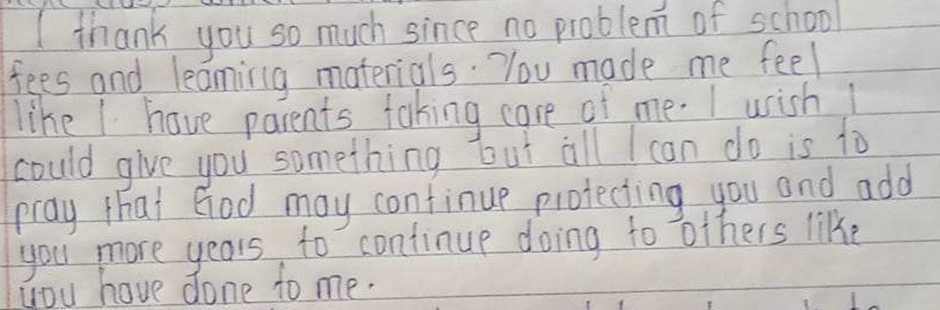 I thank you so much since no problem of school
fees and learning materials. You made me feel
like I have parents taking care of me. I wish I
could give you something but all I can do is to
pray that God may continue protecting you and add
you more years to continue doing to others like
you have done to me.